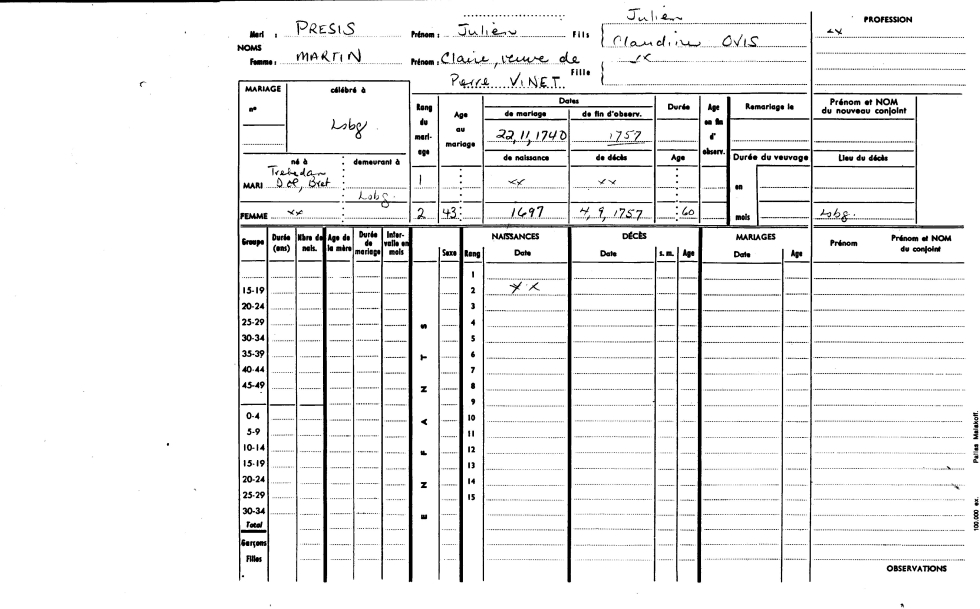 Julien
PROFESSION
Mari : PRESIS Prénom : Julien Fils Claudine OVIS xx
NOMS
Femme : MARTIN Prénom : Claire, veuve de Fille xx
Pierre VINET
MARIAGE célébré à
n° Lsbg.
Rang du mari- age
Age au mariage
Dates
de mariage de fin d'observ.
Durée
Age en fin d' observ.
Remariage le
Prénom et NOM du nouveau conjoint
22,11,1740 1757
de naissance de décès Age
Durée du veuvage
Lieu du décès
né à demeurant à
MARI Trebedan Lsbg.
1 xx xx
en
FEMME xx 2 43 1697 4,9,1757 60 mois Lsbg.
Groupe Durée (ans) Nbre de nais. Age de la mère Durée de mariage Inter- valle en mois Sexe Rang NAISSANCES Date DÉCÈS Date s. m. Age MARIAGES Date Age Prénom Prénom et NOM du conjoint
1
15-19 2 xx
20-24 3
25-29 S 4
30-34 5
35-39 T 6
40-44 7
45-49 N 8
9
0-4 A 10
5-9 11
10-14 F 12
15-19 13
20-24 N 14
25-29 15
30-34 E
Total
Garçons
Filles
OBSERVATIONS
100.000 ex. Pallas Malakoff.